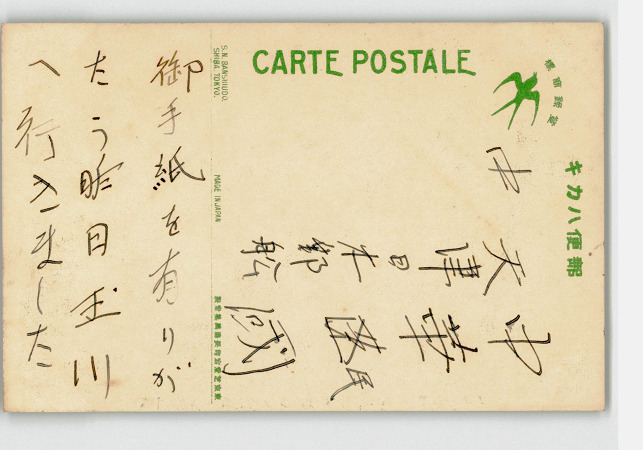 CARTE POSTALE
郵便ハカキ
登録商標
S.N. BANSHIUDO.
SHIBA. TOKYO.
MADE IN JAPAN
中華民國
天津
日本郵船
中
御手紙を有りが
たう昨日玉川
へ行きました